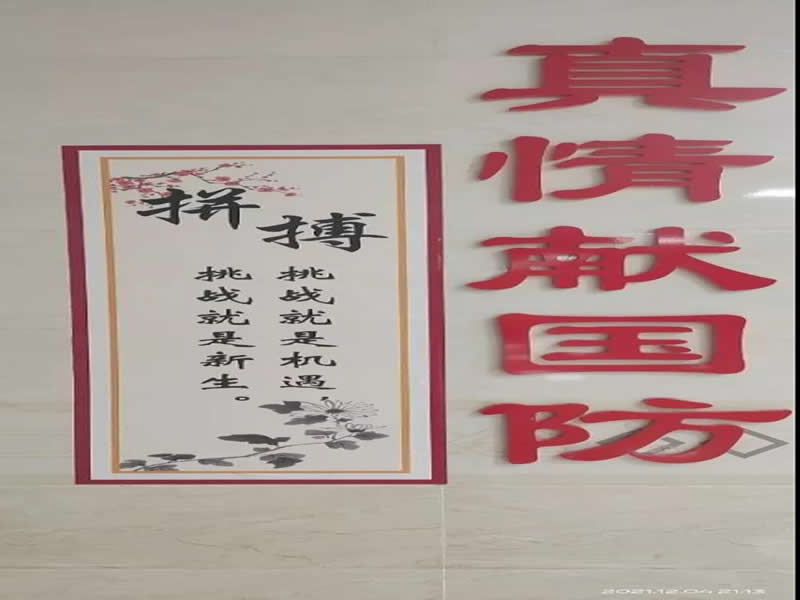 真情献国防
拼搏
挑战就是机遇，
挑战就是新生。
2021.12.04 21:13